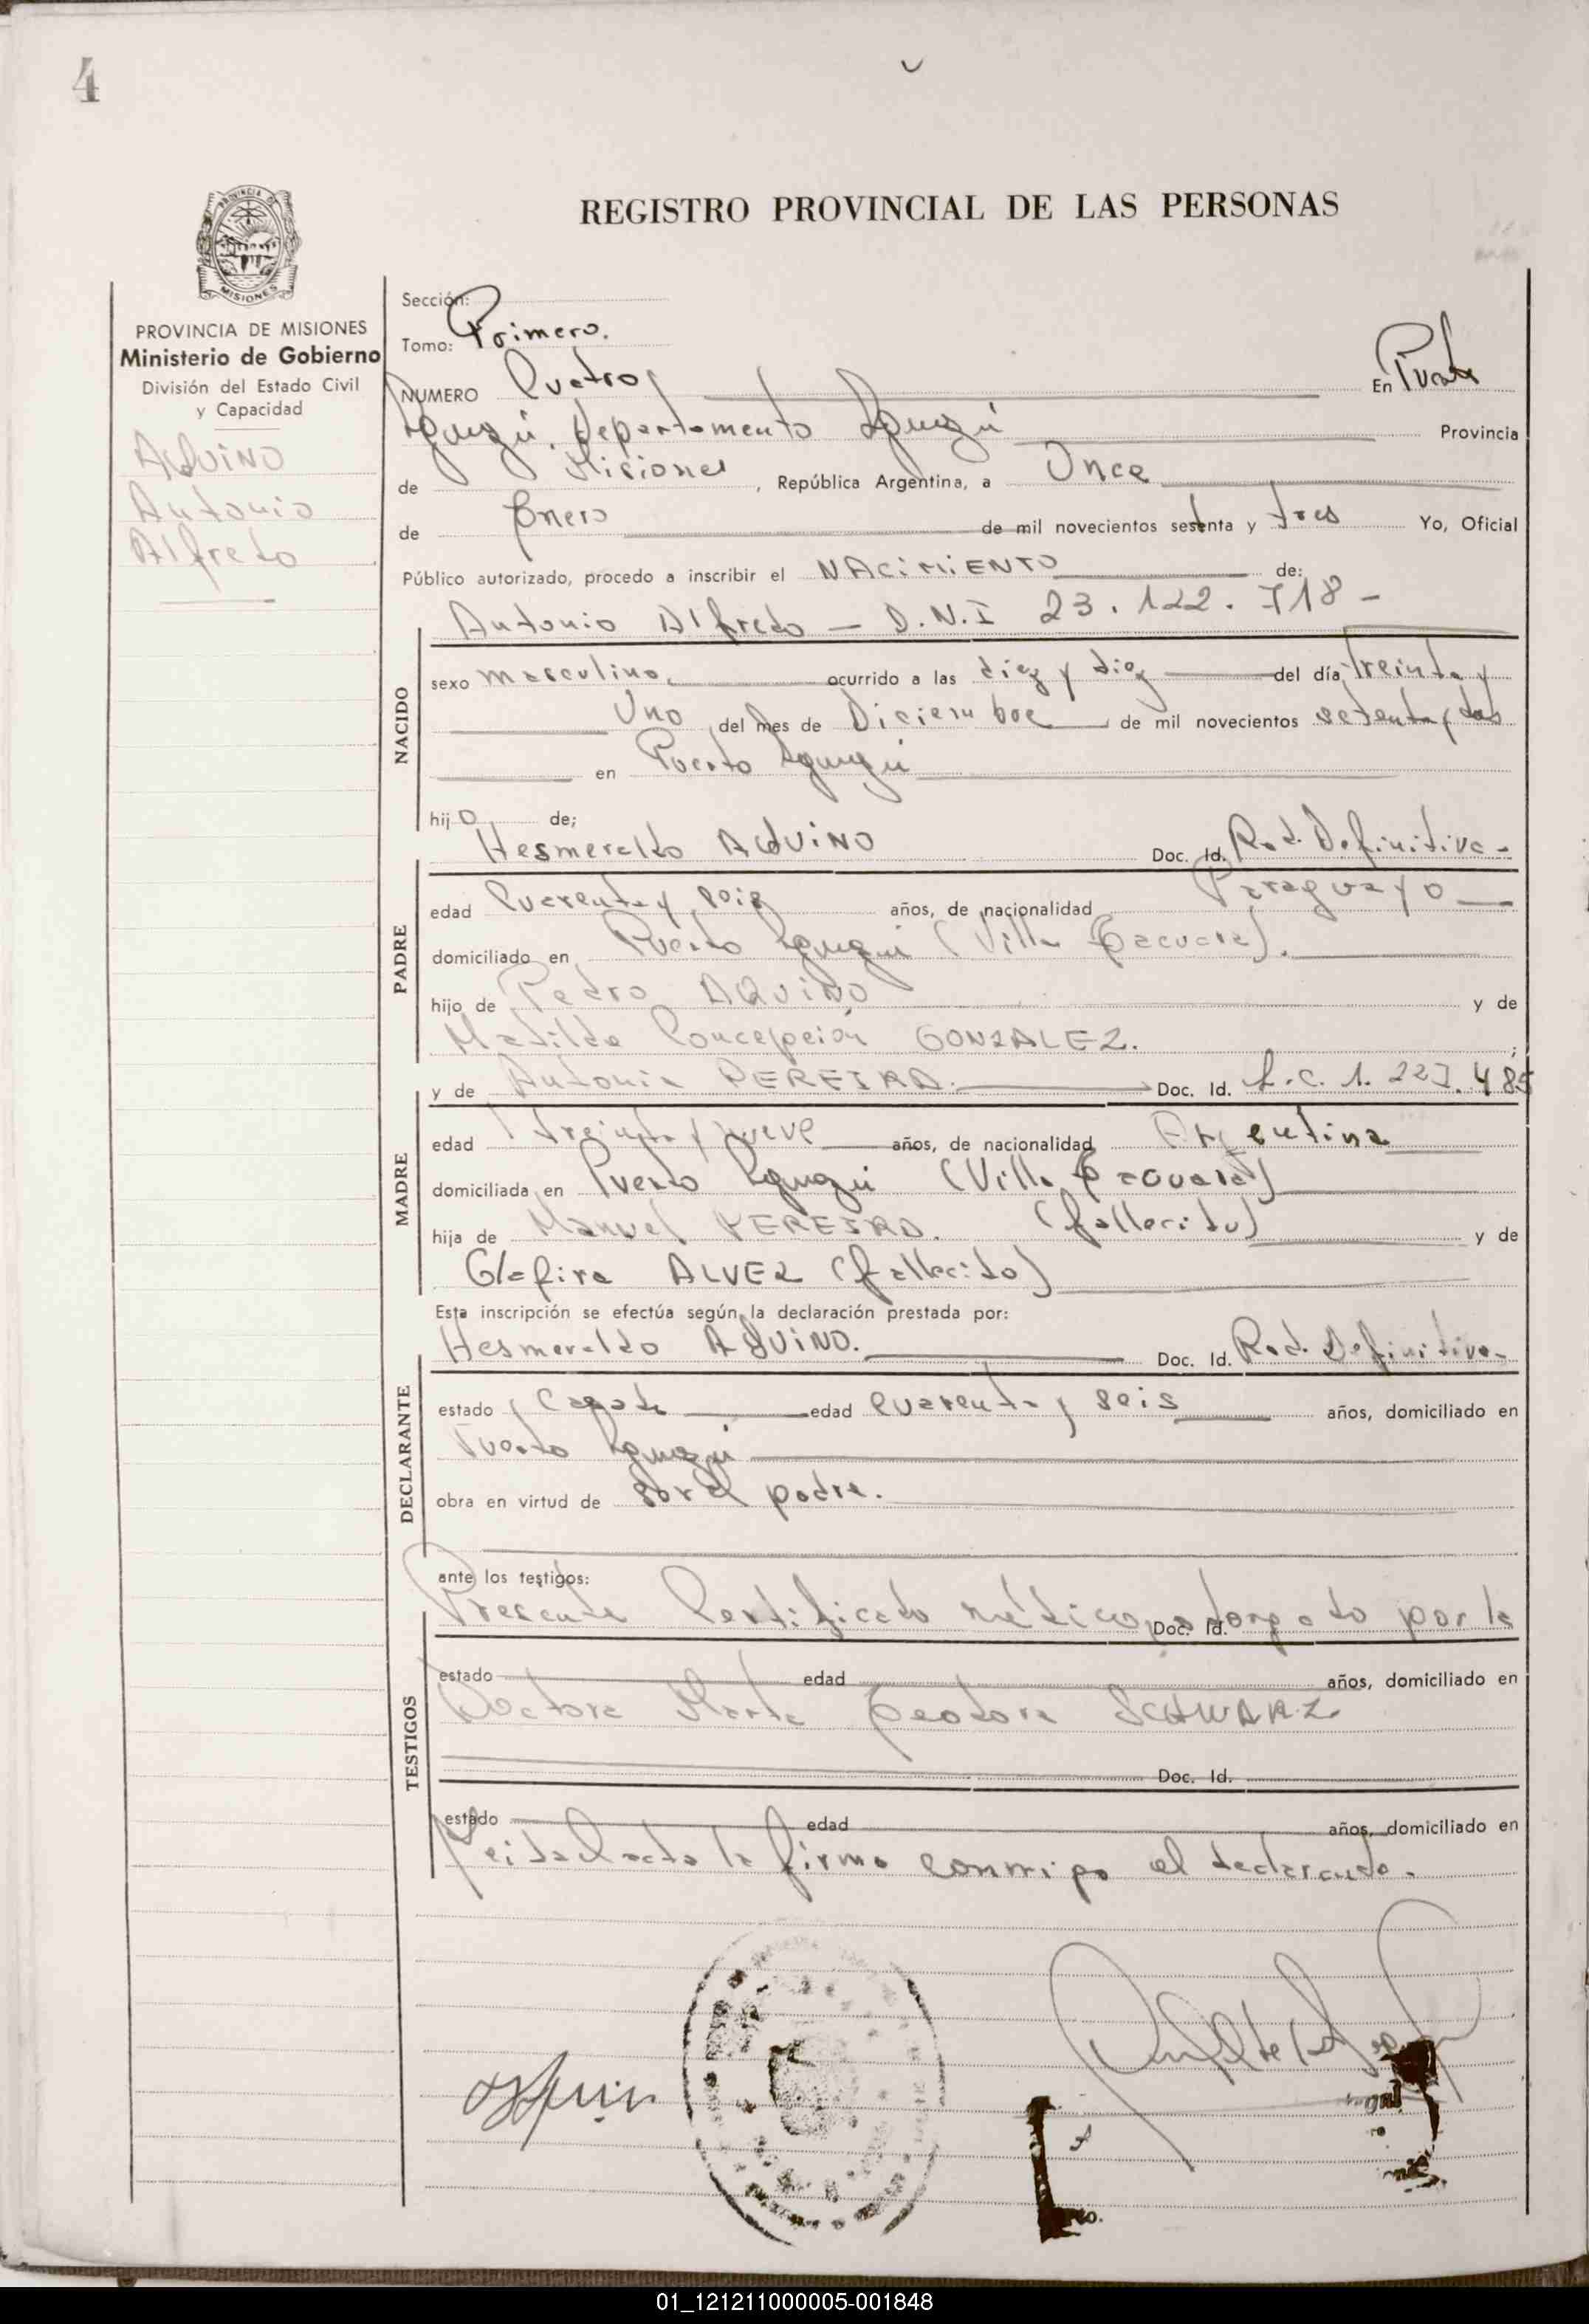 4
REGISTRO PROVINCIAL DE LAS PERSONAS
PROVINCIA DE
MISIONES
PROVINCIA DE MISIONES
Ministerio de Gobierno
División del Estado Civil
y Capacidad
AQUINO
Antonio
Alfredo
Sección:
Tomo: Primero.
NUMERO Cuatro En Puerto
Iguazú, Departamento Iguazú Provincia
de Misiones, República Argentina, a Once
de Enero de mil novecientos setenta y tres Yo, Oficial
Público autorizado, procedo a inscribir el NACIMIENTO de:
Antonio Alfredo — D.N.I 23.122.718 -
NACIDO
sexo masculino, ocurrido a las diez y diez del día treinta y
Uno del mes de Diciembre de mil novecientos setenta y dos
en Puerto Iguazú
hijo de;
Hesmeraldo AQUINO Doc. Id. Rad. Definitiva-
PADRE
edad Cuarenta y seis años, de nacionalidad Paraguayo
domiciliado en Puerto Iguazú (Villa Tacuara).
hijo de Pedro AQUINO y de
Matilde Concepción GONZALEZ. ;
y de Antonia PEREIRA. Doc. Id. L.C. 1.227.485
MADRE
edad treinta y nueve años, de nacionalidad Argentina
domiciliada en Puerto Iguazú (Villa Tacuara)
hija de Manuel PEREIRA. (fallecido) y de
Glafira ALVEZ (fallecido)
Esta inscripción se efectúa según la declaración prestada por:
Hesmeraldo AQUINO. Doc. Id. Rad. Definitiva-
DECLARANTE
estado Casado edad Cuarenta y seis años, domiciliado en
Puerto Iguazú
obra en virtud de ser el padre.
ante los testigos:
Presente Certificado médico, otorgado por la
Doc. Id.
TESTIGOS
estado edad años, domiciliado en
Doctora Marta Teodora SCHWARZ
Doc. Id.
estado edad años, domiciliado en
Leida el acta la firma conmigo el declarante.
01_121211000005-001848